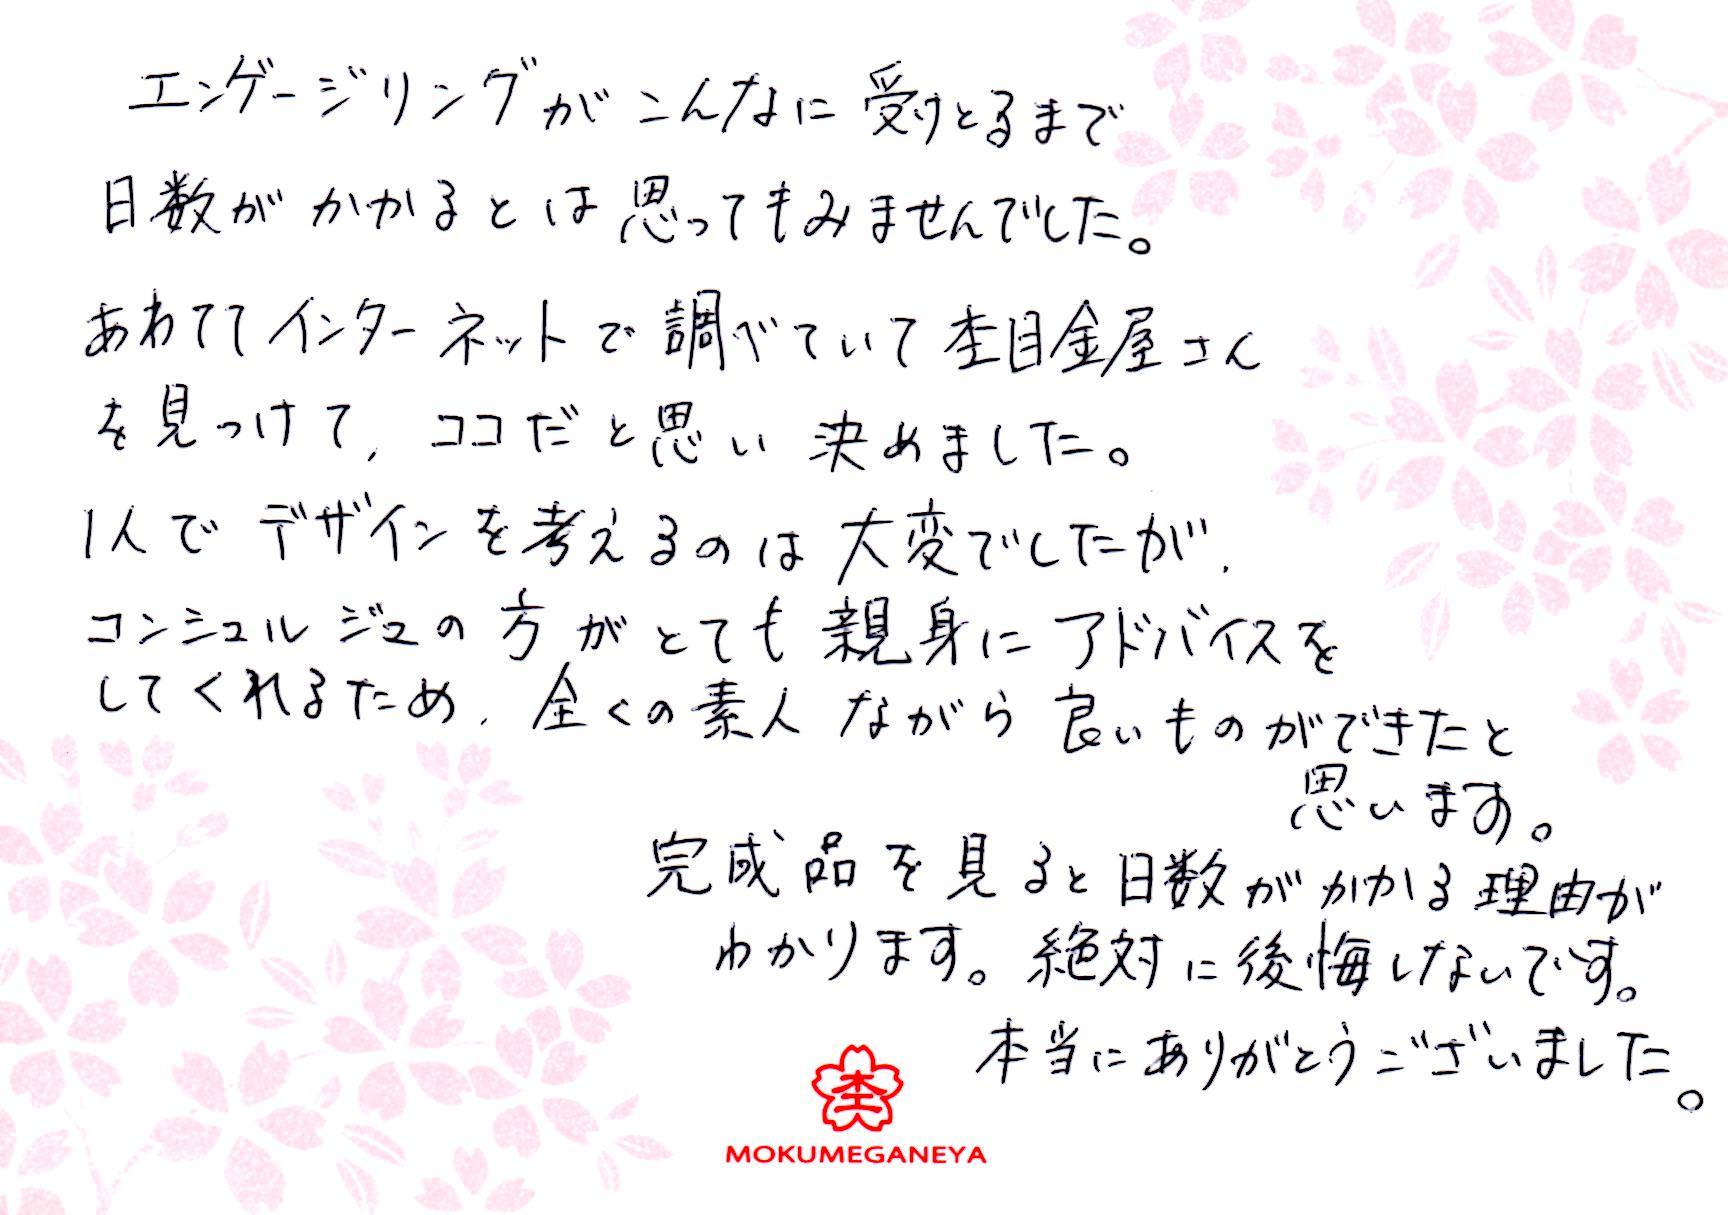 エンゲージリングがこんなに受けとるまで
日数がかかるとは思ってもみませんでした。
あわててインターネットで調べていて杢目金屋さん
を見つけて、ココだと思い決めました。
1人でデザインを考えるのは大変でしたが、
コンシュルジュの方がとても親身にアドバイスを
してくれるため、全くの素人ながら良いものができたと
思います。
完成品を見ると日数がかかる理由が
わかります。絶対に後悔しないです。
本当にありがとうございました。
杢
MOKUMEGANEYA